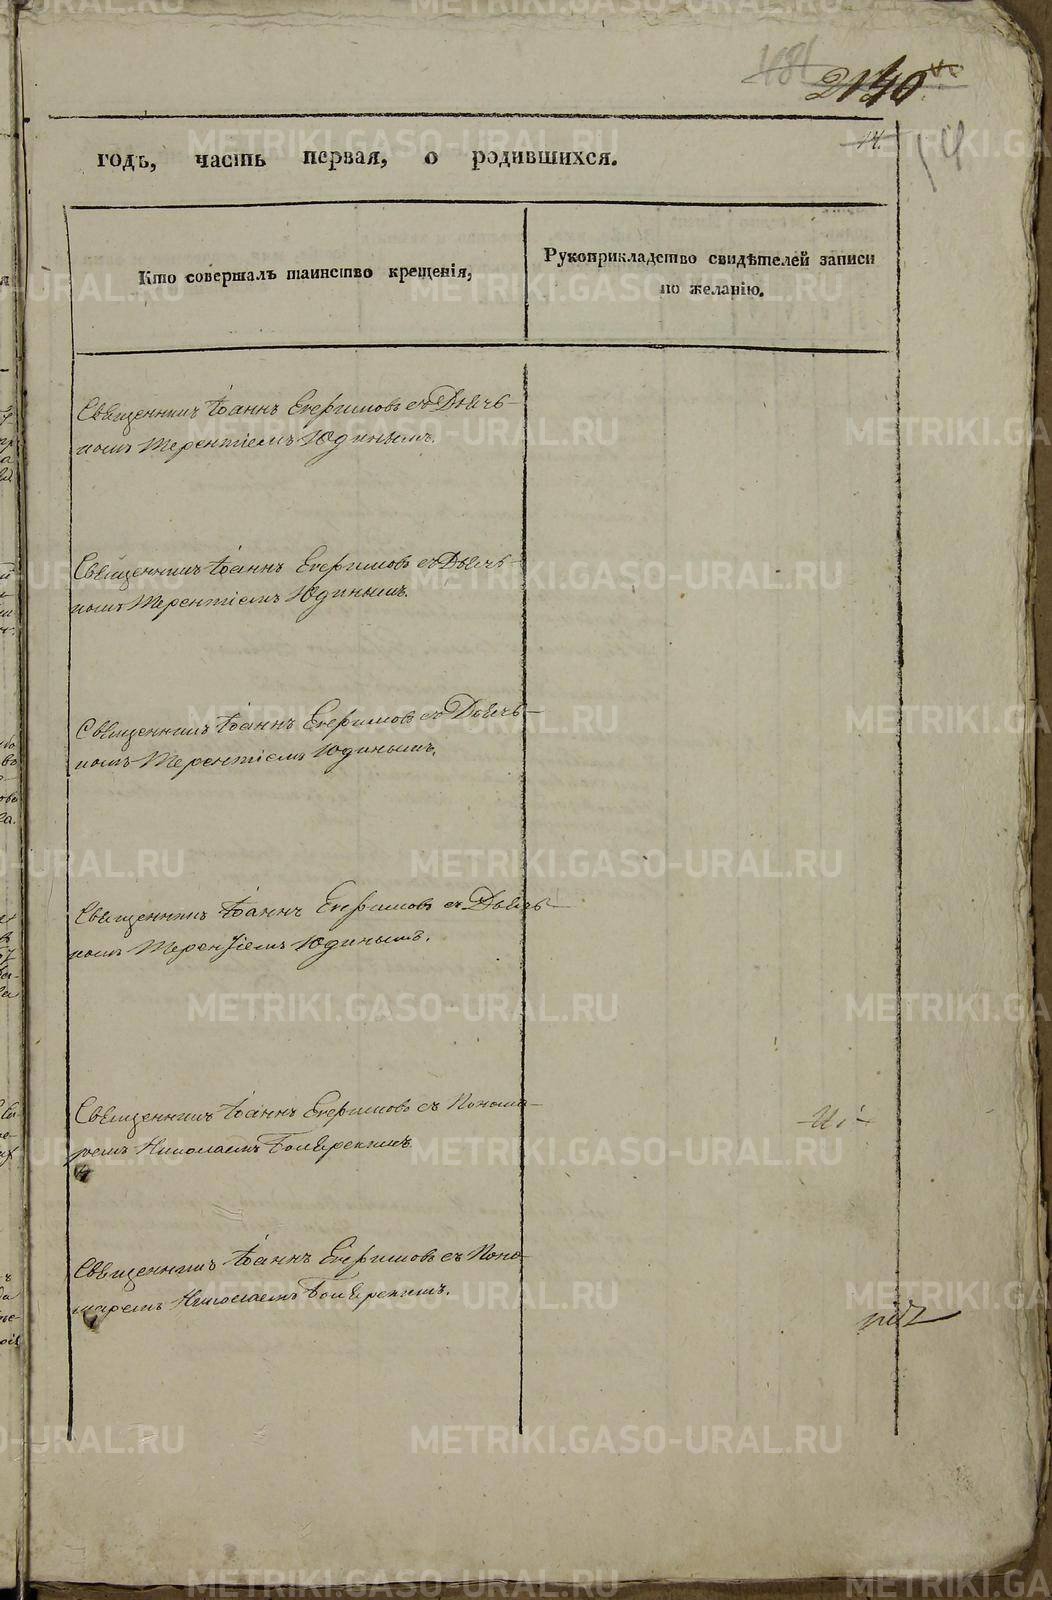 14.
годъ, часть первая, о родившихся.
Кто совершалъ таинство крещенія,
Рукоприкладство свидѣтелей записи
по желанію.
Священникъ Іоаннъ Ефимовъ съ Дьяч-
комъ Терентіемъ Юдинымъ.
Священникъ Іоаннъ Ефимовъ съ Дьяч-
комъ Терентіемъ Юдинымъ.
Священникъ Іоаннъ Ефимовъ съ Дьяч-
комъ Терентіемъ Юдинымъ.
Священникъ Іоаннъ Ефимовъ съ Дьяч-
комъ Терентіемъ Юдинымъ.
Священникъ Іоаннъ Ефимовъ съ Понома-
ремъ Николаемъ
Священникъ Іоаннъ Ефимовъ съ Поно-
маремъ Николаемъ
METRIKI.GASO-URAL.RU